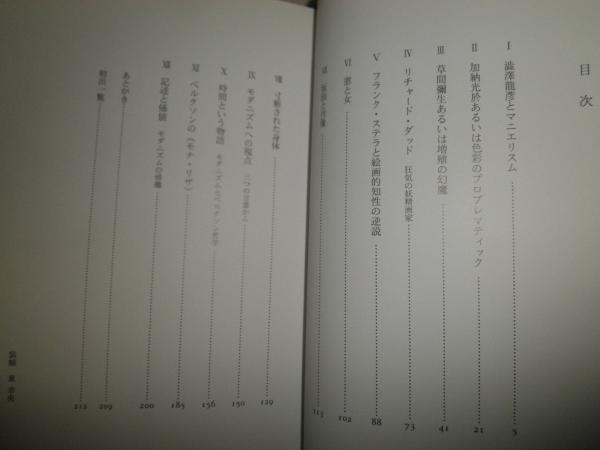 目次
I 澁澤龍彦とマニエリスム 5
II 加納光於あるいは色彩のプロブレマティック 21
III 草間彌生あるいは増殖の幻魔 41
IV リチャード・ダッド 狂気の妖精画家 73
V フランク・ステラと絵画的知性の逆説 88
VI 雲と女 102
VII 113
VIII 寸断された身体 129
IX モダニズムへの視点 三つの言葉から 150
X 時間という物語 モダニズムとベルクソン哲学 156
XI ベルクソンの《モナ・リザ》 185
XII 記述と価値 モダニズムの 200
あとがき 209
初出一覧 212
装幀